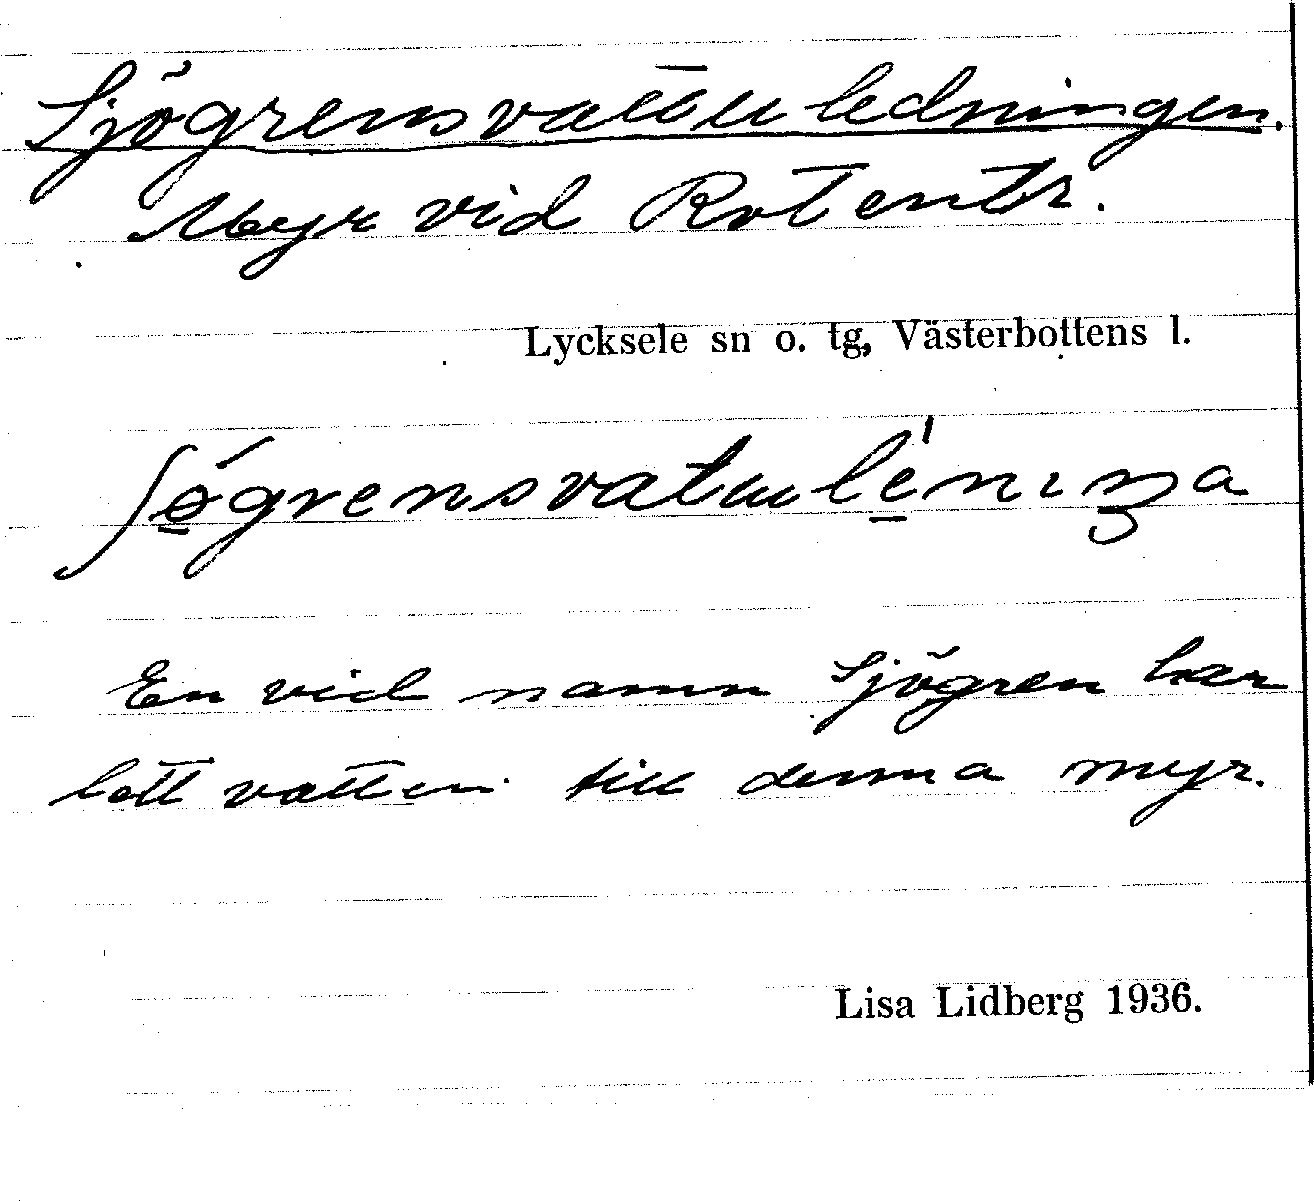 Sjögrensvattuledningen.
Myr vid Rotentr.
Lycksele sn o. tg, Västerbottens l.
En vid namn Sjögren har
lett vatten till denna myr.
Lisa Lidberg 1936.